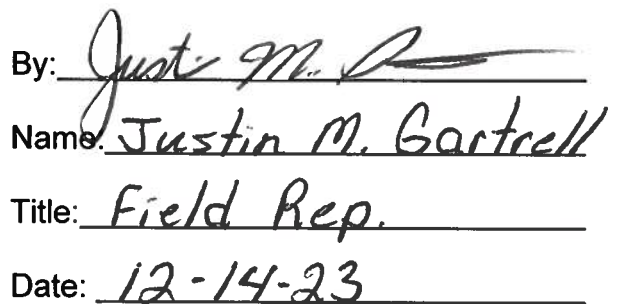 By: Justin M.
Name: Justin M. Gartrell
Title: Field Rep.
Date: 12-14-23